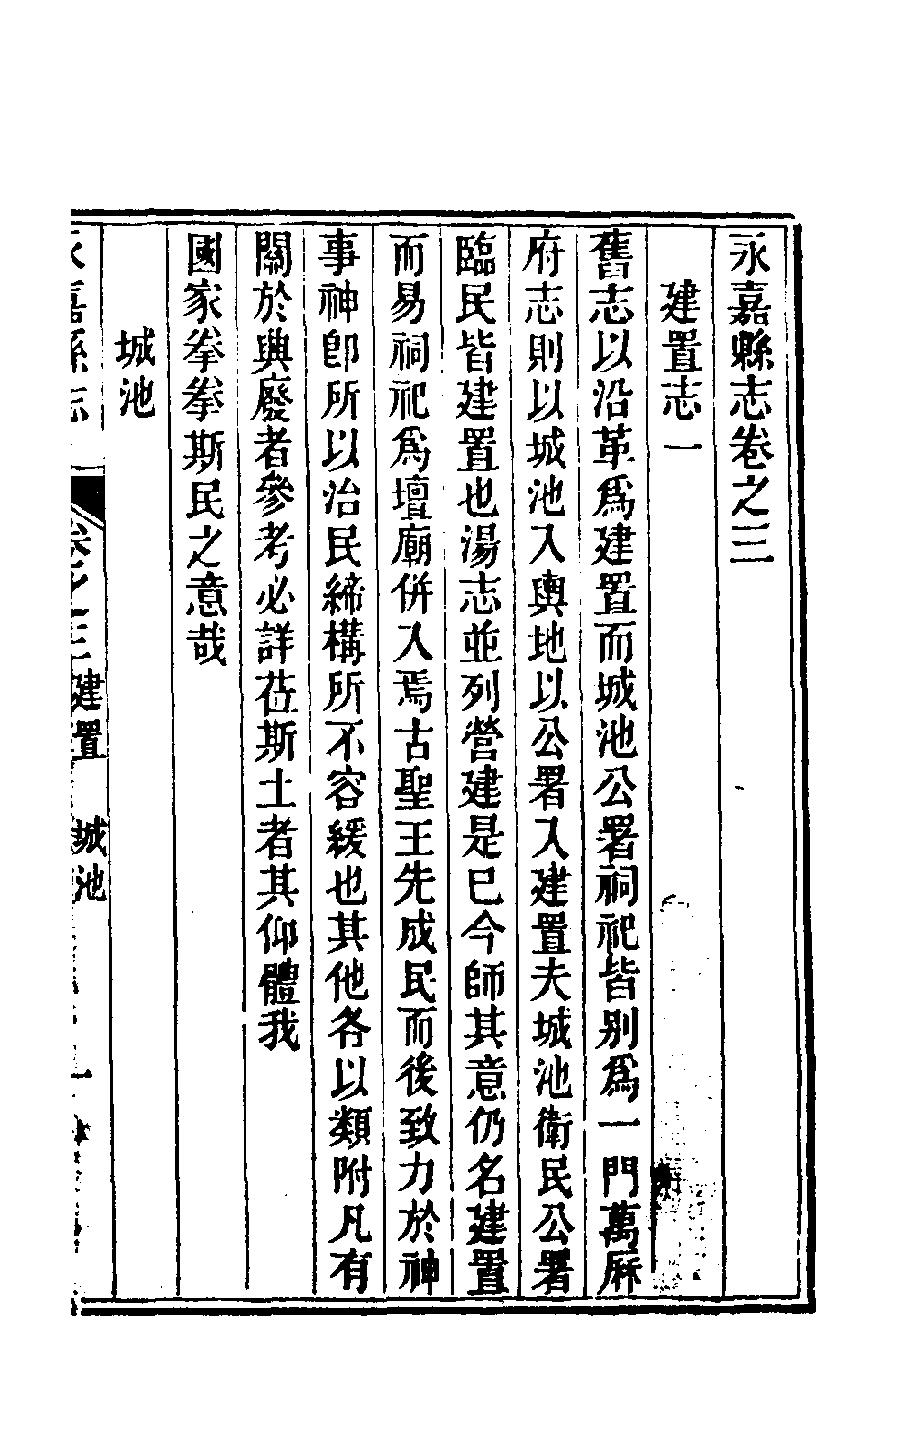 永嘉縣志卷之三
建置志一
舊志以沿革爲建置而城池公署祠祀皆别爲一門萬厤
府志則以城池入輿地以公署入建置夫城池衛民公署
臨民皆建置也湯志並列營建是已今師其意仍名建置
而易祠祀爲壇廟併入焉古聖王先成民而後致力於神
事神卽所以治民締構所不容緩也其他各以類附凡有
關於興廢者參考必詳莅斯土者其仰體我
國家拳拳斯民之意哉
城池
永嘉縣志 卷之三 建置 城池 一